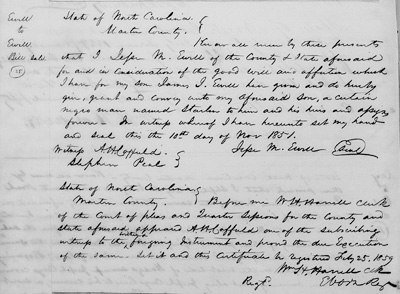 Ewell
to
Ewell
Bill sale
State of North Carolina {
Martin County. {
Know all men by these presents
that I Jesse M. Ewell of the County & State aforesaid
for and in Consideration of the good will and affection which
I have for my son James I. Ewell have given and do hereby
give, grant and convey unto my aforesaid son, a certain
negro man named to him and his heirs and assigns
forever. In witness whereof I have hereunto set my hand
and seal this the 10th day of Nov 1851.
Witness Jesse M. Ewell (Seal)
Stephen Peal }
State of North Carolina {
Martin County. } Before me W. H. Harrell Clerk
of the Court of pleas and Quarter Sessions for the County and
state aforesaid appeared one of the subscribing
witness to the foregoing Instrument and proved the due Execution
of the same. Let it and this Certificate be registered July 25. 1859
Wm H Harrell Clk
Regt.